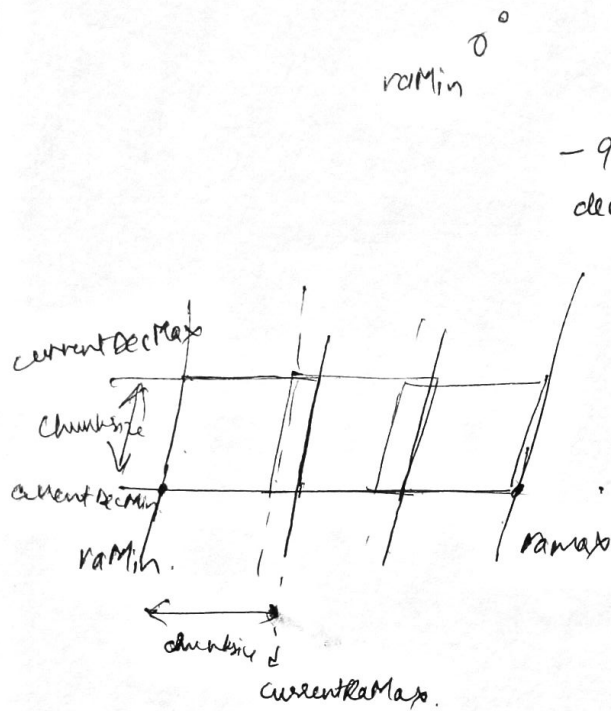 0°
raMin
- 9
dec
currentDecMax
chunksize
currentDecMin
raMin.
ramax
chunksize
currentRaMax.